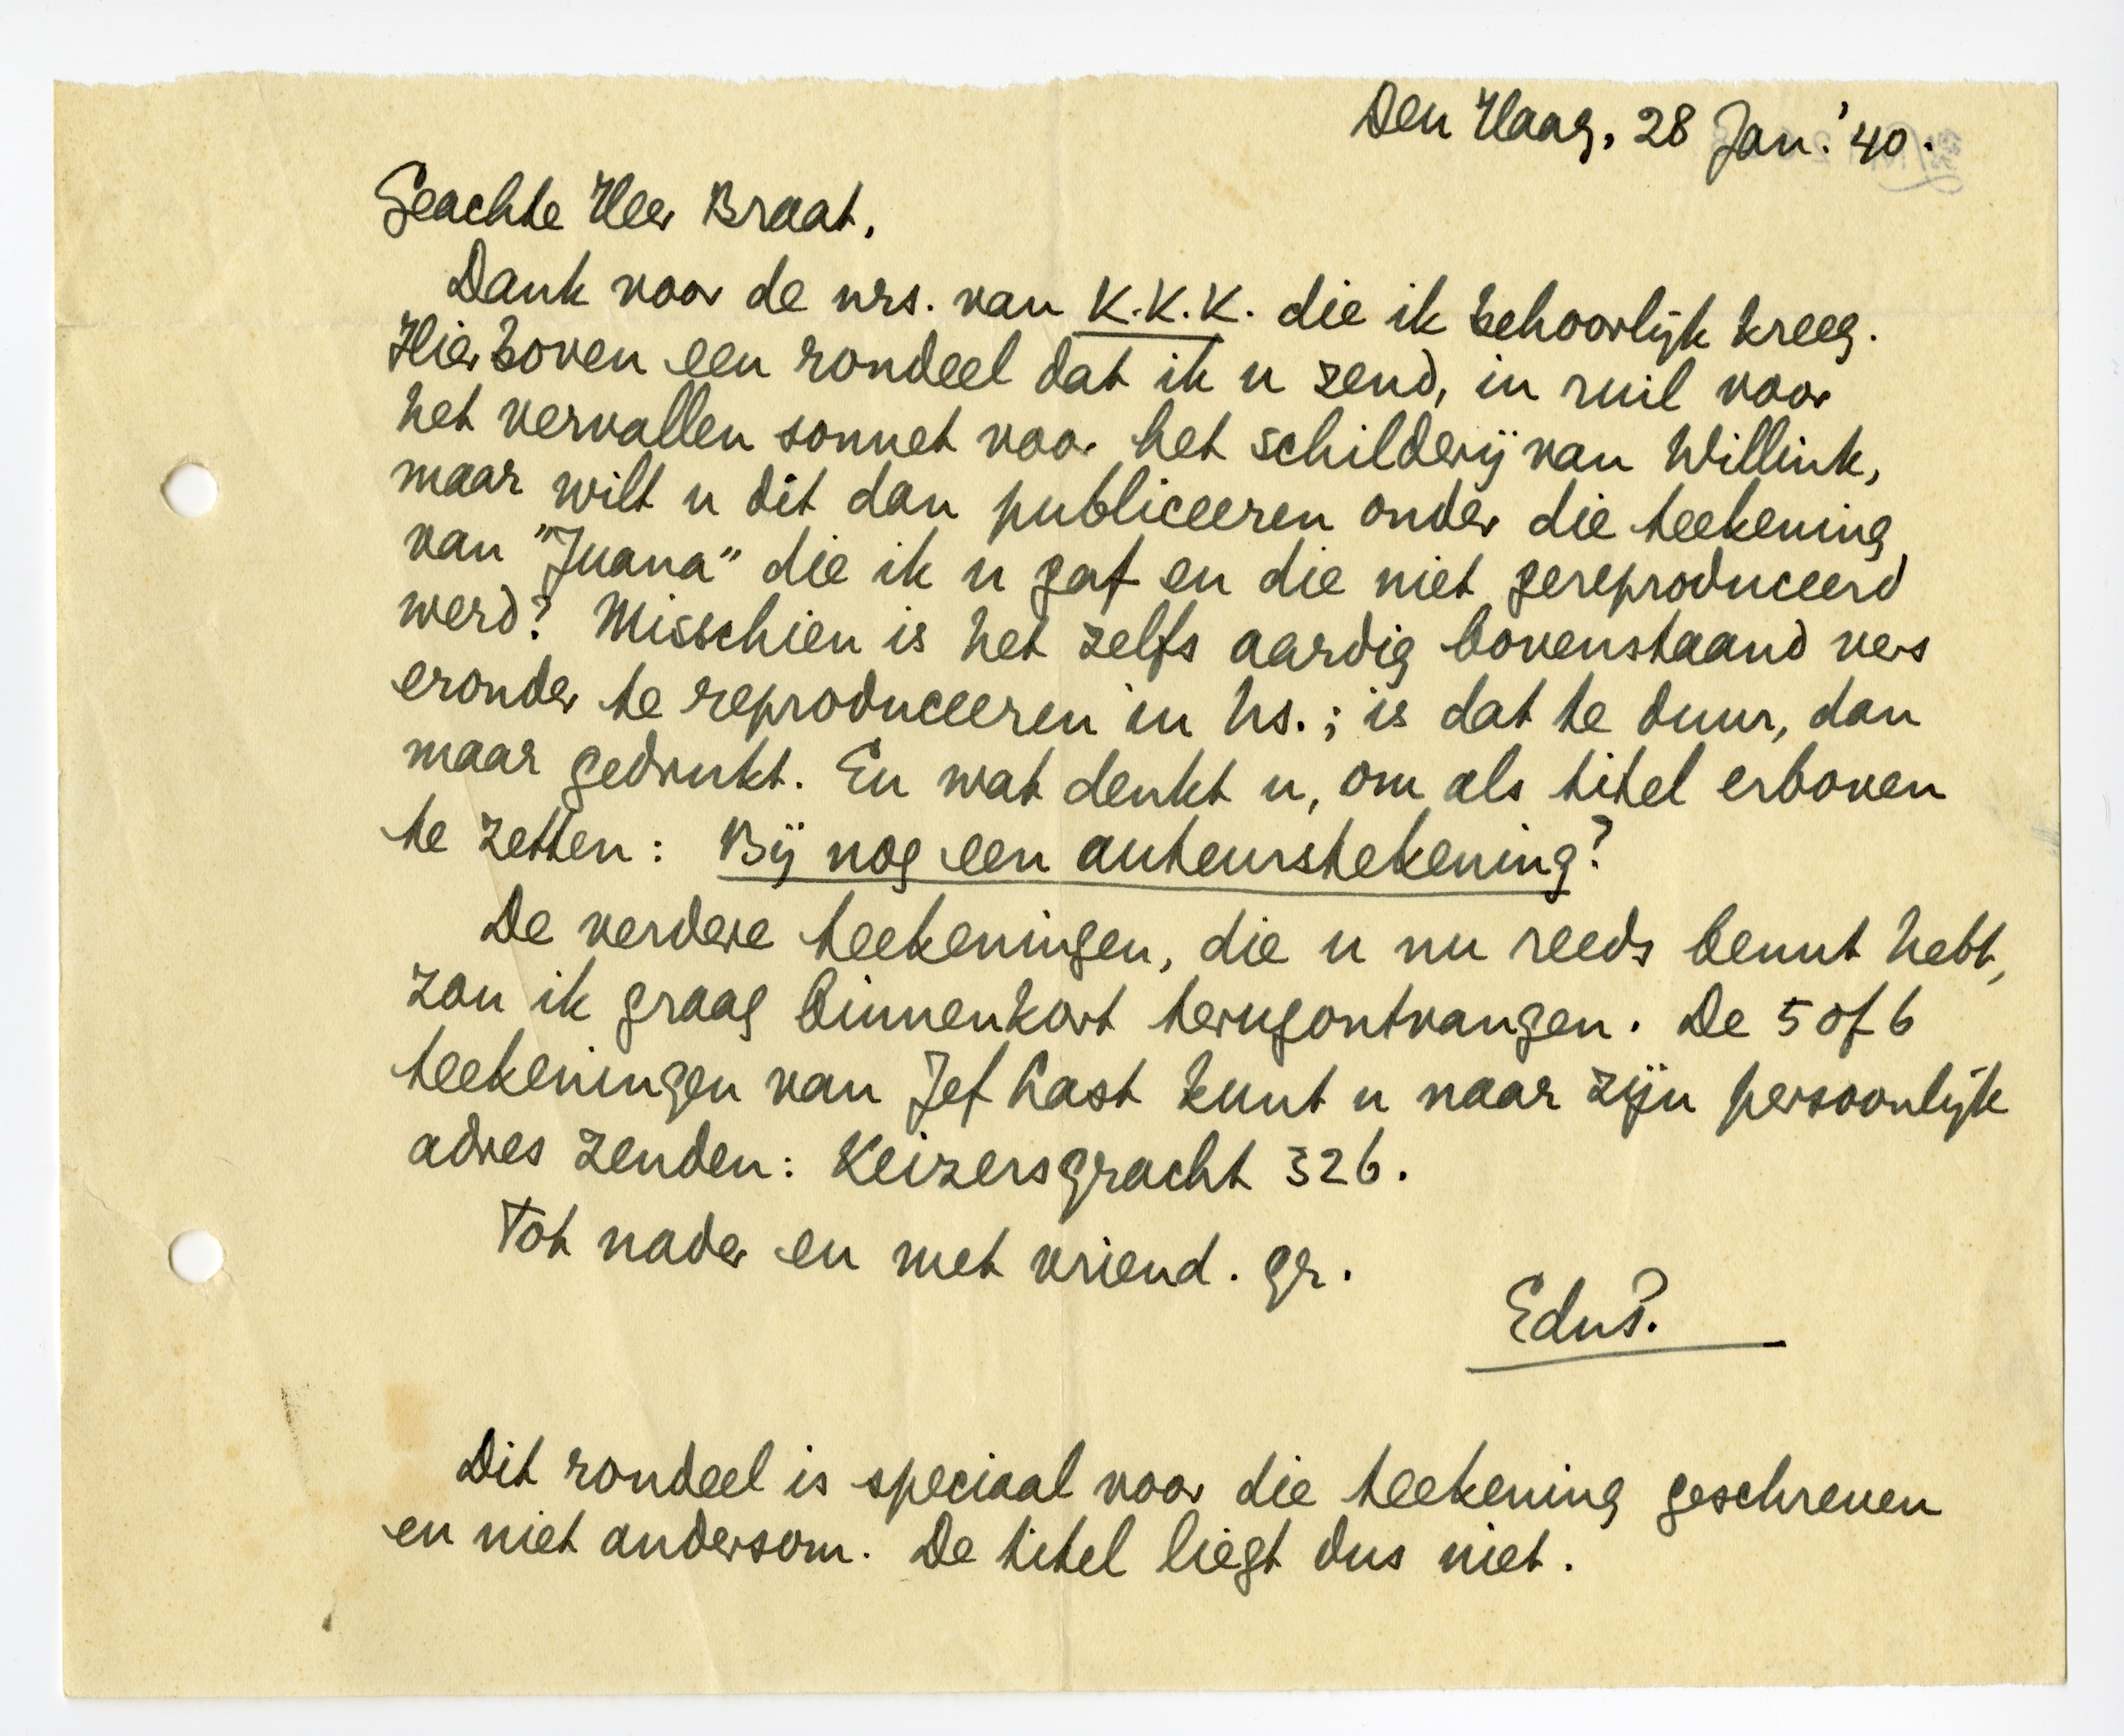 Den Haag, 28 Jan. '40.
Geachte Heer Braat,
Dank voor de nrs. van K.K.K. die ik behoorlijk kreeg.
Hierboven een rondeel dat ik u zend, in ruil voor
het vervallen sonnet voor het schilderij van Willink,
maar wilt u dit dan publiceeren onder die teekening
van "Juana" die ik u gaf en die niet gereproduceerd
werd? Misschien is het zelfs aardig bovenstaand vers
eronder te reproduceeren in hs.; is dat te duur, dan
maar gedrukt. En wat denkt u, om als titel erboven
te zetten: Bij nog een auteurstekening?
De verdere teekeningen, die u nu reeds benut hebt,
zou ik graag binnenkort terugontvangen. De 5 of 6
teekeningen van Jef Last kunt u naar zijn persoonlijk
adres zenden: Keizersgracht 326.
Tot nader en met vriend. gr.
EduP.
Dit rondeel is speciaal voor die teekening geschreven
en niet andersom. De titel liegt dus niet.